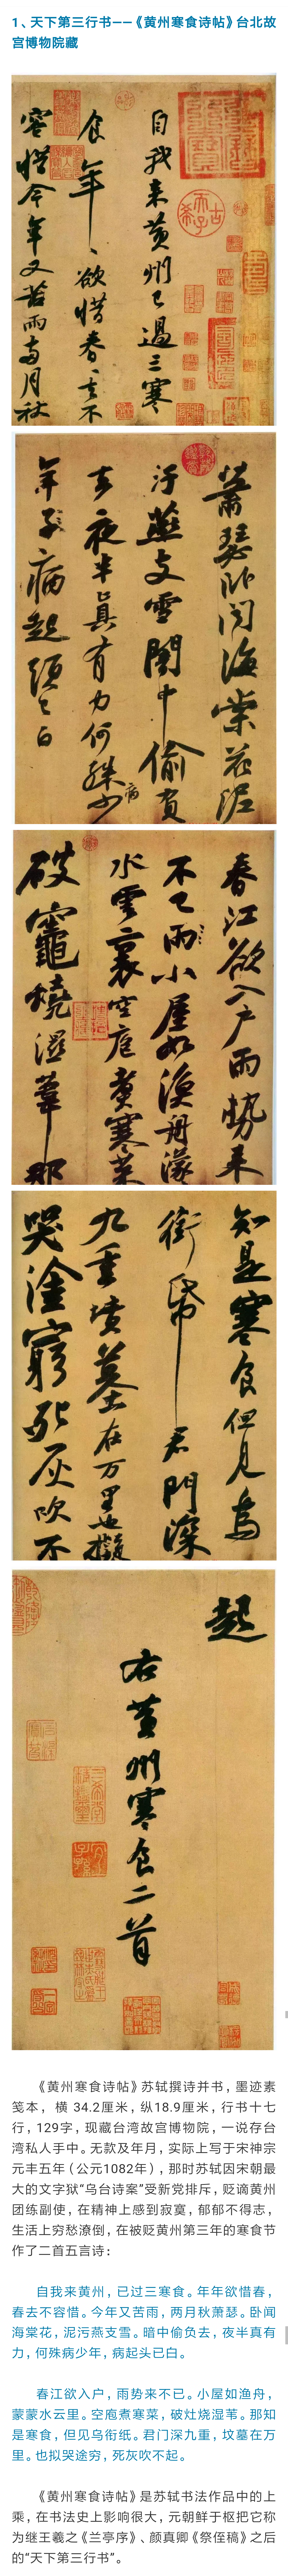 1、天下第三行书——《黄州寒食诗帖》台北故
宫博物院藏
自我来黄州已过三寒
食年〻欲惜春春去不
容惜今年又苦雨两月秋
萧瑟卧闻海棠花泥
汙燕支雪闇中偷负
去夜半真有力何殊少
病
年子病起须已白
春江欲入户雨势来
不已雨小屋如渔舟濛
水云里空庖煮寒菜
破灶烧湿苇那
知是寒食但见乌
衔帋君门深
九重坟墓在万里也拟
哭涂穷死灰吹不
起
右黄州寒食二首
《黄州寒食诗帖》苏轼撰诗并书，墨迹素
笺本， 横 34.2厘米，纵18.9厘米，行书十七
行，129字，现藏台湾故宫博物院，一说存台
湾私人手中。无款及年月，实际上写于宋神宗
元丰五年（公元1082年），那时苏轼因宋朝最
大的文字狱“乌台诗案”受新党排斥，贬谪黄州
团练副使，在精神上感到寂寞，郁郁不得志，
生活上穷愁潦倒，在被贬黄州第三年的寒食节
作了二首五言诗：
自我来黄州，已过三寒食。年年欲惜春，
春去不容惜。今年又苦雨，两月秋萧瑟。卧闻
海棠花，泥污燕支雪。暗中偷负去，夜半真有
力，何殊病少年，病起头已白。
春江欲入户，雨势来不已。小屋如渔舟，
蒙蒙水云里。空庖煮寒菜，破灶烧湿苇。那知
是寒食，但见乌衔纸。君门深九重，坟墓在万
里。也拟哭途穷，死灰吹不起。
《黄州寒食诗帖》是苏轼书法作品中的上
乘，在书法史上影响很大，元朝鲜于枢把它称
为继王羲之《兰亭序》、颜真卿《祭侄稿》之后
的“天下第三行书”。